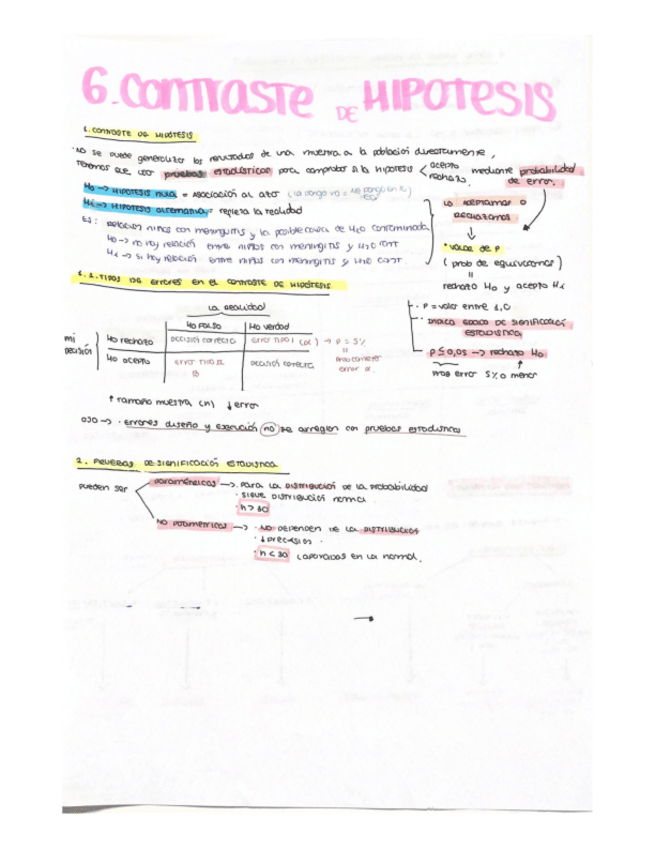 6. CONTRASTE DE HIPOTESIS
1. CONTRASTE DE HIPÓTESIS
· NO se puede generalizar los resultados de una muestra a la población directamente,
tenemos que usar pruebas estadísticas para comprobar si la hipótesis < acepto
rechazo. mediante probabilidad
de error.
H0 → HIPÓTESIS nula = asociación al azar
H1 → HIPÓTESIS alternativa = refleja la realidad
Lo aceptamos o
rechazamos
EJ: Relación niños con meningitis y la posible causa de H2O contaminada
H0 → no hay relación entre niños con meningitis y H2O cont
H1 → si hay relación entre niños con meningitis y H2O cont.
* Valor de P
( prob de equivocarnos )
=
rechazo H0 y acepto H1
1.1. TIPOS DE ERRORES EN EL CONTRASTE DE HIPÓTESIS
· P = valor entre 1,0
· Indica grado de significación
estadística
P ≤ 0,05 → rechazo H0
prob error 5% o menor
La realidad
H0 falso H0 verdad
mi
decisión
H0 rechazo decisión correcta error tipo I (α) → P = 5%
=
error α.
H0 acepto error tipo II
ß decisión correcta
↑ tamaño muestra (n) ↓ error
OJO → · errores diseño y ejecución no se arreglan con pruebas estadísticas
2. PRUEBAS DE SIGNIFICACIÓN ESTADÍSTICA
pueden ser
paramétricas → · Para la distribución de la probabilidad
· sigue distribución normal
· n > 30
No parametricas → · NO dependen de la distribución
· ↓ precisión ·
· n < 30 en la normal.